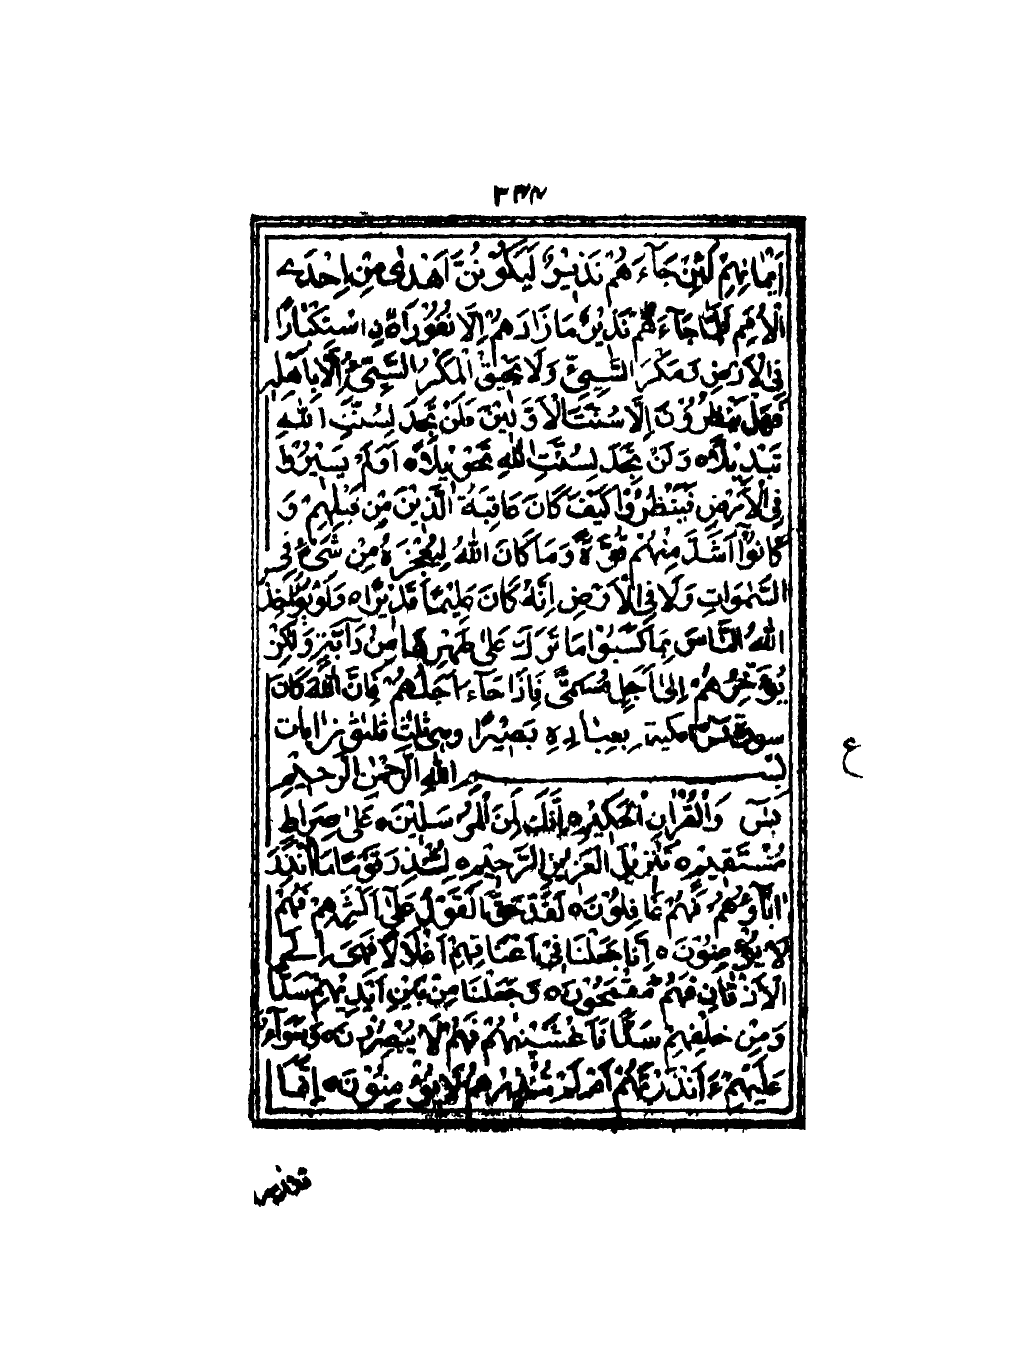 ٣٤٢
اَيْمَانِهِمْ لَئِنْ جَآءَهُمْ نَذِيْرٌ لَيَكُوْنُنَّ اَهْدٰى مِنْ اِحْدَى
الْاُمَمِ فَلَمَّا جَآءَهُمْ نَذِيْرٌ مَا زَادَهُمْ اِلَّا نُفُوْرًا ه اسْتِكْبَارًا
فِى الْاَرْضِ وَمَكْرَ السَّيِّئِ وَلَا يَحِيْقُ الْمَكْرُ السَّيِّئُ اِلَّا بِاَهْلِهٖ
فَهَلْ يَنْظُرُوْنَ اِلَّا سُنَّتَ الْاَوَّلِيْنَ فَلَنْ تَجِدَ لِسُنَّتِ اللّٰهِ
تَبْدِيْلًا ه وَلَنْ تَجِدَ لِسُنَّتِ اللّٰهِ تَحْوِيْلًا ه اَوَلَمْ يَسِيْرُوْا
فِى الْاَرْضِ فَيَنْظُرُوْا كَيْفَ كَانَ عَاقِبَةُ الَّذِيْنَ مِنْ قَبْلِهِمْ وَ
كَانُوْٓا اَشَدَّ مِنْهُمْ قُوَّةً وَمَا كَانَ اللّٰهُ لِيُعْجِزَهٗ مِنْ شَىْءٍ فِى
السَّمٰوَاتِ وَلَا فِى الْاَرْضِ اِنَّهٗ كَانَ عَلِيْمًا قَدِيْرًا ه وَلَوْ يُؤَاخِذُ
اللّٰهُ النَّاسَ بِمَا كَسَبُوْا مَا تَرَكَ عَلٰى ظَهْرِهَا مِنْ دَآبَّةٍ وَلٰكِنْ
يُؤَخِّرُهُمْ اِلٰى اَجَلٍ مُسَمًّى فَاِذَا جَآءَ اَجَلُهُمْ فَاِنَّ اللّٰهَ كَانَ
سورة يٰسٓ مكية بِعِبَادِهٖ بَصِيْرًا وهى ثلث وثمٰنون اٰيات
بِسْمِ اللّٰهِ الرَّحْمٰنِ الرَّحِيْمِ
ع
يٰسٓ وَالْقُرْاٰنِ الْحَكِيْمِ ه اِنَّكَ لَمِنَ الْمُرْسَلِيْنَ ه عَلٰى صِرَاطٍ
مُسْتَقِيْمٍ ه تَنْزِيْلَ الْعَزِيْزِ الرَّحِيْمِ ه لِتُنْذِرَ قَوْمًا مَا اُنْذِرَ
اٰبَآؤُهُمْ فَهُمْ غَافِلُوْنَ ه لَقَدْ حَقَّ الْقَوْلُ عَلٰٓى اَكْثَرِهِمْ فَهُمْ
لَا يُؤْمِنُوْنَ ه اِنَّا جَعَلْنَا فِىْ اَعْنَاقِهِمْ اَغْلَالًا فَهِىَ اِلَى
الْاَذْقَانِ فَهُمْ مُقْمَحُوْنَ ه وَجَعَلْنَا مِنْ بَيْنِ اَيْدِيْهِمْ سَدًّا
وَمِنْ خَلْفِهِمْ سَدًّا فَاَغْشَيْنٰهُمْ فَهُمْ لَا يُبْصِرُوْنَ ه وَسَوَآءٌ
عَلَيْهِمْ ءَاَنْذَرْتَهُمْ اَمْ لَمْ تُنْذِرْهُمْ لَا يُؤْمِنُوْنَ ه اِنَّمَا
تنذر